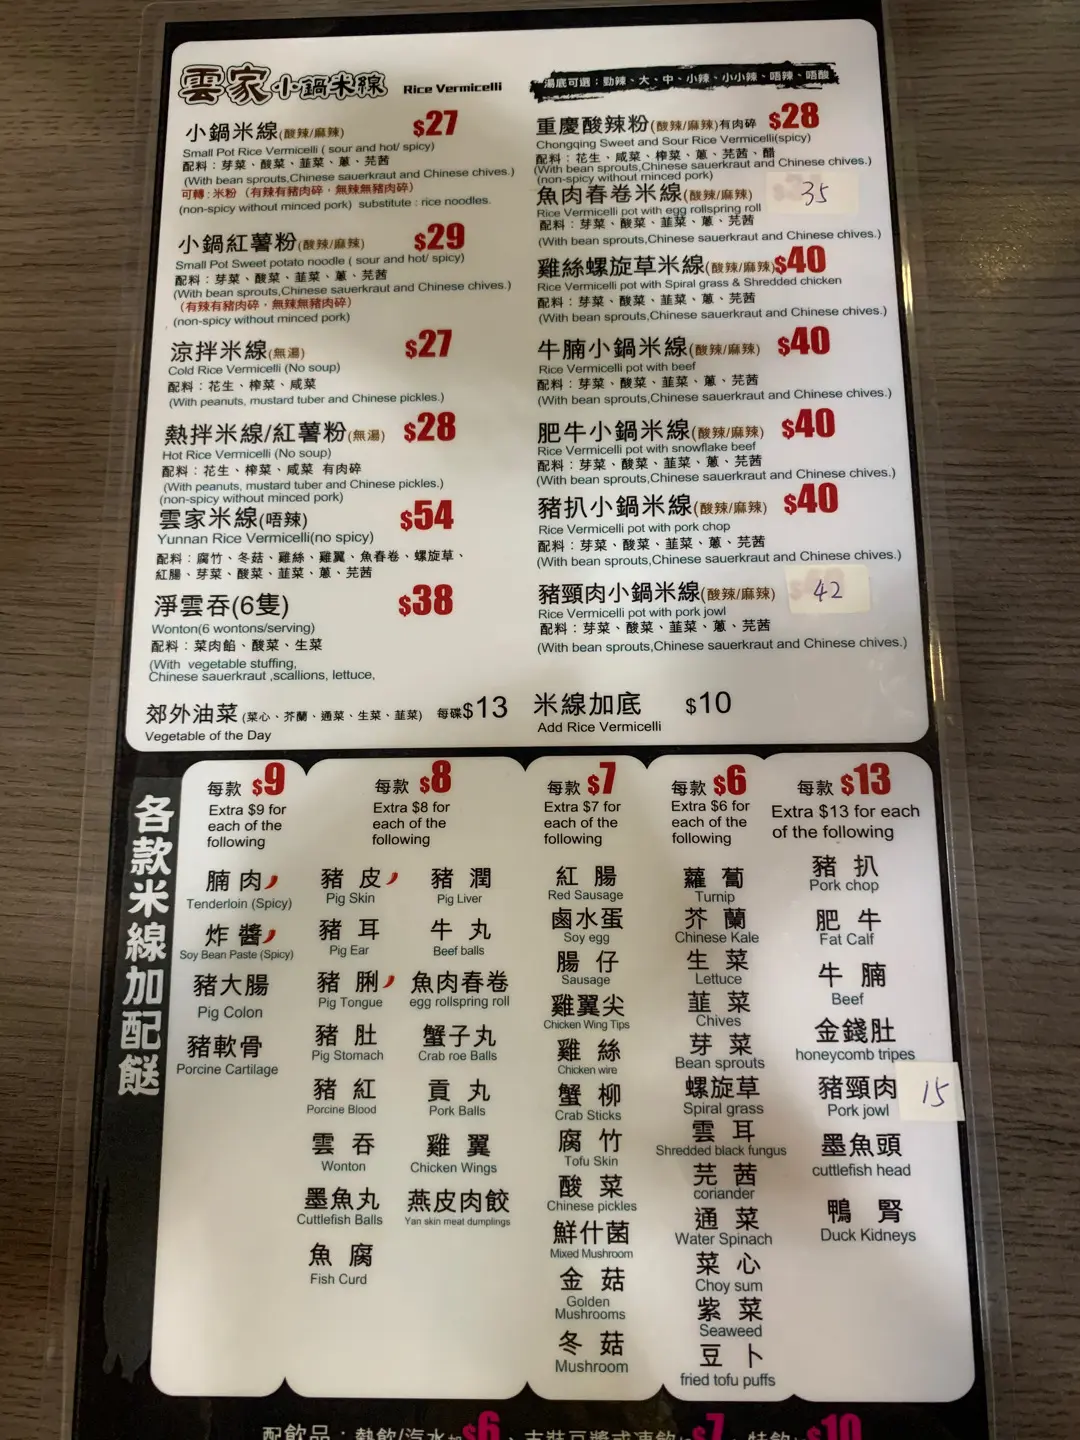 雲家小鍋米線 Rice Vermicelli
湯底可選：勁辣、大、中、小辣、小小辣、唔辣、唔酸
小鍋米線(酸辣/麻辣) $27
Small Pot Rice Vermicelli ( sour and hot/ spicy)
配料：芽菜、酸菜、韮菜、蔥、芫茜
(With bean sprouts,Chinese sauerkraut and Chinese chives.)
可轉：米粉（有辣有豬肉碎，無辣無豬肉碎）
(non-spicy without minced pork) substitute : rice noodles.
小鍋紅薯粉(酸辣/麻辣) $29
Small Pot Sweet potato noodle ( sour and hot/ spicy)
配料：芽菜、酸菜、韮菜、蔥、芫茜
(With bean sprouts,Chinese sauerkraut and Chinese chives.)
（有辣有豬肉碎，無辣無豬肉碎）
(non-spicy without minced pork)
涼拌米線(無湯) $27
Cold Rice Vermicelli (No soup)
配料：花生、榨菜、咸菜
(With peanuts, mustard tuber and Chinese pickles.)
熱拌米線/紅薯粉(無湯) $28
Hot Rice Vermicelli (No soup)
配料：花生、榨菜、咸菜 有肉碎
(With peanuts, mustard tuber and Chinese pickles.)
(non-spicy without minced pork)
雲家米線(唔辣) $54
Yunnan Rice Vermicelli(no spicy)
配料：腐竹、冬菇、雞絲、雞翼、魚春卷、螺旋草、
紅腸、芽菜、酸菜、韮菜、蔥、芫茜
淨雲吞(6隻) $38
Wonton(6 wontons/serving)
配料：菜肉餡、酸菜、生菜
(With vegetable stuffing,
Chinese sauerkraut ,scallions, lettuce,
郊外油菜(菜心、芥蘭、通菜、生菜、韮菜) 每碟$13
Vegetable of the Day
重慶酸辣粉(酸辣/麻辣)有肉碎 $28
Chongqing Sweet and Sour Rice Vermicelli(spicy)
配料：花生、咸菜、榨菜、蔥、芫茜、醋
(With bean sprouts,Chinese sauerkraut and Chinese chives.)
(non-spicy without minced pork)
魚肉春卷米線(酸辣/麻辣) 35
Rice Vermicelli pot with egg rollspring roll
配料：芽菜、酸菜、韮菜、蔥、芫茜
(With bean sprouts,Chinese sauerkraut and Chinese chives.)
雞絲螺旋草米線(酸辣/麻辣) $40
Rice Vermicelli pot with Spiral grass & Shredded chicken
配料：芽菜、酸菜、韮菜、蔥、芫茜
(With bean sprouts,Chinese sauerkraut and Chinese chives.)
牛腩小鍋米線(酸辣/麻辣) $40
Rice Vermicelli pot with beef
配料：芽菜、酸菜、韮菜、蔥、芫茜
(With bean sprouts,Chinese sauerkraut and Chinese chives.)
肥牛小鍋米線(酸辣/麻辣) $40
Rice Vermicelli pot with snowflake beef
配料：芽菜、酸菜、韮菜、蔥、芫茜
(With bean sprouts,Chinese sauerkraut and Chinese chives.)
豬扒小鍋米線(酸辣/麻辣) $40
Rice Vermicelli pot with pork chop
配料：芽菜、酸菜、韮菜、蔥、芫茜
(With bean sprouts,Chinese sauerkraut and Chinese chives.)
豬頸肉小鍋米線(酸辣/麻辣) 42
Rice Vermicelli pot with pork jowl
配料：芽菜、酸菜、韮菜、蔥、芫茜
(With bean sprouts,Chinese sauerkraut and Chinese chives.)
米線加底 $10
Add Rice Vermicelli
各款米線加配餸
每款 $9
Extra $9 for
each of the
following
腩肉
Tenderloin (Spicy)
炸醬
Soy Bean Paste (Spicy)
豬大腸
Pig Colon
豬軟骨
Porcine Cartilage
每款 $8
Extra $8 for
each of the
following
豬皮
Pig Skin
豬耳
Pig Ear
豬脷
Pig Tongue
豬肚
Pig Stomach
豬紅
Porcine Blood
雲吞
Wonton
墨魚丸
Cuttlefish Balls
魚腐
Fish Curd
豬潤
Pig Liver
牛丸
Beef balls
魚肉春卷
egg rollspring roll
蟹子丸
Crab roe Balls
貢丸
Pork Balls
雞翼
Chicken Wings
燕皮肉餃
Yan skin meat dumplings
每款 $7
Extra $7 for
each of the
following
紅腸
Red Sausage
鹵水蛋
Soy egg
腸仔
Sausage
雞翼尖
Chicken Wing Tips
雞絲
Chicken wire
蟹柳
Crab Sticks
腐竹
Tofu Skin
酸菜
Chinese pickles
鮮什菌
Mixed Mushroom
金菇
Golden
Mushrooms
冬菇
Mushroom
每款 $6
Extra $6 for
each of the
following
蘿蔔
Turnip
芥蘭
Chinese Kale
生菜
Lettuce
韮菜
Chives
芽菜
Bean sprouts
螺旋草
Spiral grass
雲耳
Shredded black fungus
芫茜
coriander
通菜
Water Spinach
菜心
Choy sum
紫菜
Seaweed
豆卜
fried tofu puffs
每款 $13
Extra $13 for each
of the following
豬扒
Pork chop
肥牛
Fat Calf
牛腩
Beef
金錢肚
honeycomb tripes
豬頸肉 15
Pork jowl
墨魚頭
cuttlefish head
鴨腎
Duck Kidneys
配飲品：熱飲/汽水 $6、支裝豆漿或凍飲 $7、特飲 $10